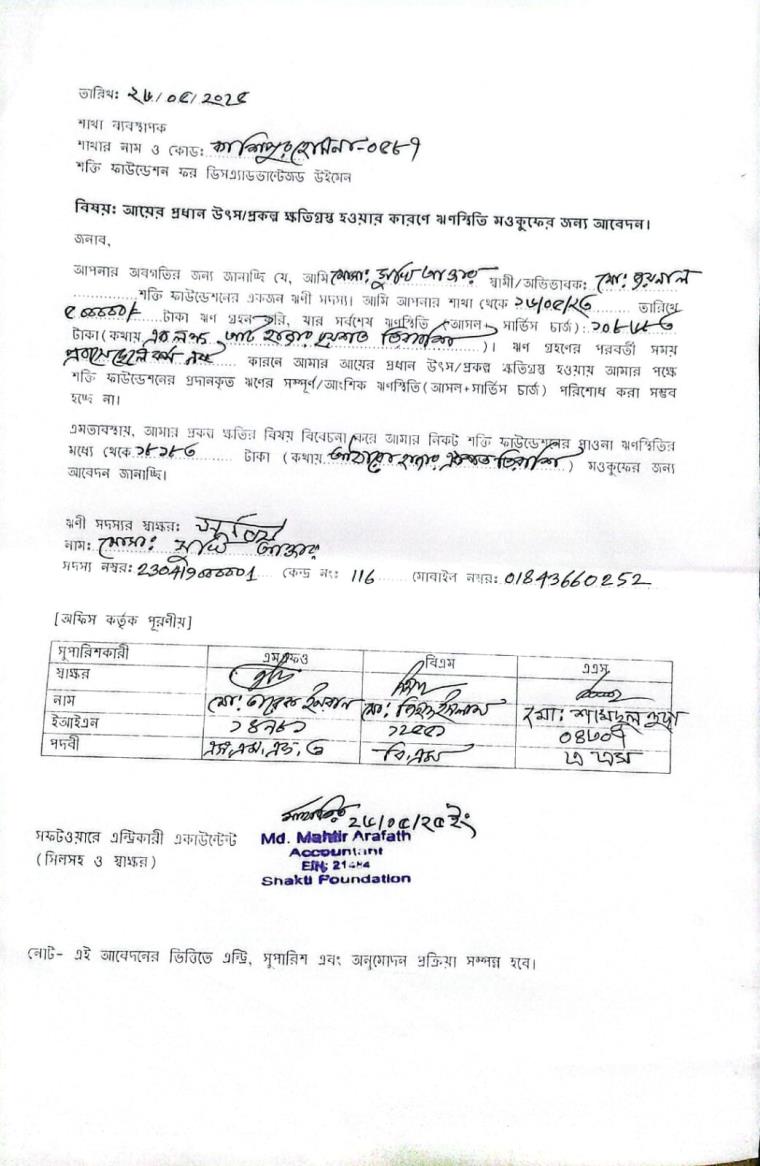 তারিখঃ ২৬/০৫/২০২৫
শাখা ব্যবস্থাপক
শাখার নাম ও কোডঃ কাশিপুর হোমনা-০৫৮৭
শক্তি ফাউন্ডেশন ফর ডিসএ্যাডভান্টেজড উইমেন
বিষয়ঃ আয়ের প্রধান উৎস/প্রকল্প ক্ষতিগ্রস্থ হওয়ার কারণে ঋণস্থিতি মওকুফের জন্য আবেদন।
জনাব,
আপনার অবগতির জন্য জানাচ্ছি যে, আমি মোসাঃ আক্তার স্বামী/অভিভাবকঃ মোঃ
শক্তি ফাউন্ডেশনের একজন ঋণী সদস্য। আমি আপনার শাখা থেকে তারিখে
টাকা ঋণ গ্রহন করি, যার সর্বশেষ ঋণস্থিতি (আসল+ সার্ভিস চার্জ): ১০৮২৮৩
টাকা (কথায় এক লক্ষ আট হাজার দুইশত তিরাশি )। ঋণ গ্রহণের পরবর্তী সময়
কারনে আমার আয়ের প্রধান উৎস/প্রকল্প ক্ষতিগ্রস্থ হওয়ায় আমার পক্ষে
শক্তি ফাউন্ডেশনের প্রদানকৃত ঋণের সম্পূর্ণ/আংশিক ঋণস্থিতি (আসল+সার্ভিস চার্জ) পরিশোধ করা সম্ভব
হচ্ছে না।
এমতাবস্থায়, আমার প্রকল্প ক্ষতির বিষয় বিবেচনা করে আমার নিকট শক্তি ফাউন্ডেশনের পাওনা ঋণস্থিতির
মধ্যে থেকে ১৮১৮৩ টাকা (কথায় আঠারো হাজার একশত তিরাশি ) মওকুফের জন্য
আবেদন জানাচ্ছি।
ঋণী সদস্যর স্বাক্ষরঃ
নামঃ মোসাঃ আক্তার
সদস্য নম্বরঃ কেন্দ্র নংঃ 116 মোবাইল নম্বরঃ 01843660252
[অফিস কর্তৃক পূরণীয়]
সুপারিশকারী এমএফও বিএম এএস
স্বাক্ষর
নাম মোঃ মোঃ ইসলাম মোঃ
ইআইএন ১৪৭৮১
পদবী বি,এম এ এস
২৬/০৫/২৫ ইং
সফটওয়ারে এন্ট্রিকারী একাউন্টেন্ট
(সিলসহ ও স্বাক্ষর)
Md. Mahtir Arafath
Accountant
EIN:
Shakti Foundation
নোট- এই আবেদনের ভিত্তিতে এন্ট্রি, সুপারিশ এবং অনুমোদন প্রক্রিয়া সম্পন্ন হবে।